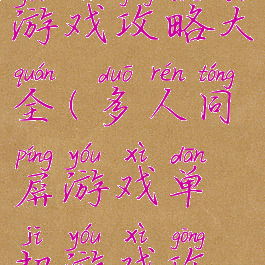 游戏攻略大
quán duō rén tóng
全(多人同
píng yóu xì dān
屏游戏单
jī yóu xì gōng
机游戏攻